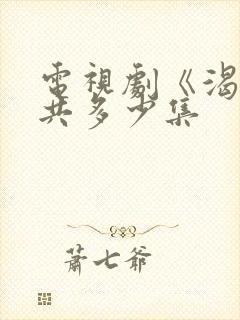 電視劇《渴
共多少集
蕭七爺